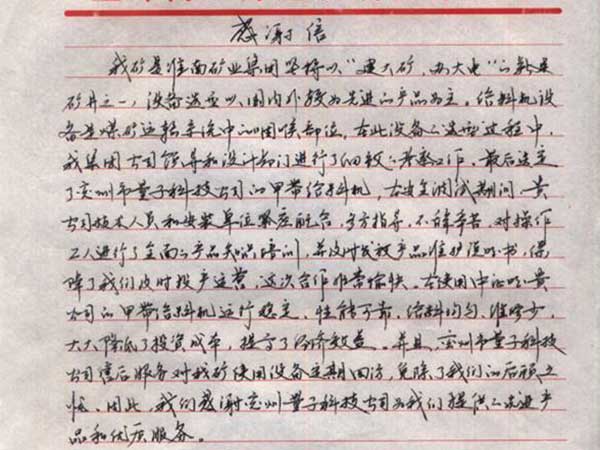 感谢信
我矿是淮南矿业集团坚持以“建大矿，办大电”的新型
矿井之一，设备选型以国内外较为先进的产品为主。给料机设
备是煤矿运输系统中的咽喉部位，在此设备的选型过程中，
我集团公司领导和设计部门进行了细致的考察工作，最后选定
了兖州市量子科技公司的甲带给料机，在安全调试期间，贵
公司技术人员和安装单位紧密配合，多方指导，不辞辛苦，对操作
工人进行了全面的产品知识培训，并及时发放产品维护说明书，保
障了我们及时投产运营，这次合作非常愉快。在使用中证明，贵
公司的甲带给料机运行稳定、性能可靠、给料均匀、维修少，
大大降低了投资成本，提高了经济效益。并且，兖州市量子科技
公司售后服务对我矿使用设备定期回访，免除了我们的后顾之
忧。因此，我们感谢兖州量子科技公司为我们提供的先进产
品和优质服务。